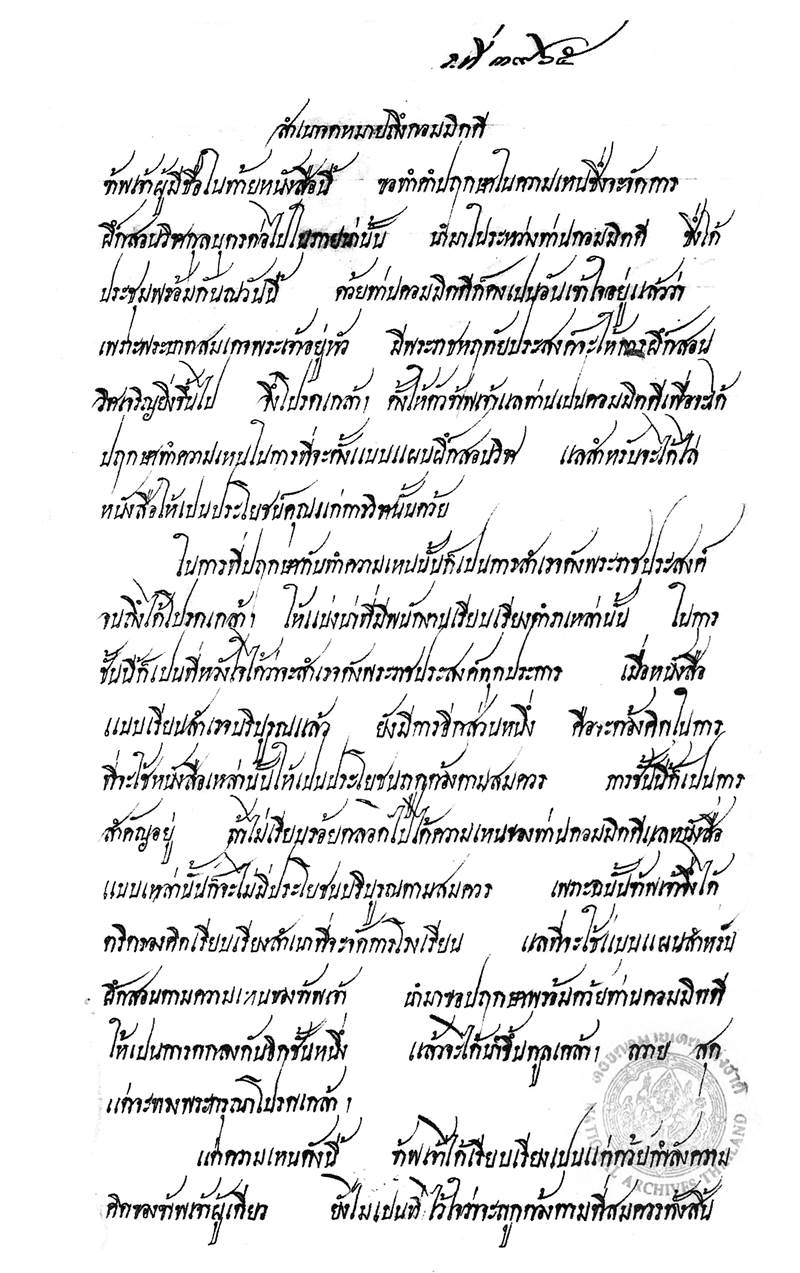 ก.ที่ ๓๙๖๕
สำเนาจดหมายถึงกอมมิตตี
ข้าพเจ้าผู้มีชื่อในท้ายหนังสือนี้ ขอทำคำปฤกษาในความเหนซึ่งจะจัดการ
ฝึกสอนวิชากุลบุตรต่อไปในภายน่านั้น นำมาในระหว่างท่านกอมมิตตี ซึ่งได้
ประชุมพร้อมกันณวันนี้ ด้วยท่านกอมมิตตีก็คงเปนอันเข้าใจอยู่แล้วว่า
เพราะพระบาทสมเดจพระเจ้าอยู่หัว มีพระราชหฤทัยประสงค์จะให้การฝึกสอน
วิชาเจริญยิ่งขึ้นไป จึ่งโปรดเกล้าฯ ตั้งให้ตัวข้าพเจ้าแลท่านเปนกอมมิตตีเพื่อจะได้
ปฤกษาทำความเหนในการที่จะตั้งแบบแผนฝึกสอนวิชา แลสำหรับจะได้ไล่
หนังสือให้เปนประโยชน์คุณแก่การวิชานั้นด้วย
ในการที่ปฤกษากันทำความเหนนั้นก็เปนการสำเรจดังพระราชประสงค์
จนถึงได้โปรดเกล้าฯ ให้แบ่งน่าที่มีพนักงานเรียบเรียงตำราเหล่านั้น ในการ
ชั้นนี้ก็เปนที่หวังใจได้ว่าจะสำเรจดังพระราชประสงค์ทุกประการ เมื่อหนังสือ
แบบเรียนสำเรจบริบูรณแล้ว ยังมีการอีกส่วนหนึ่ง คือจะต้องคิดในการ
ที่จะใช้หนังสือเหล่านั้นให้เปนประโยชนถูกต้องตามสมควร การชั้นนี้ก็เปนการ
สำคัญอยู่ ถ้าไม่เรียบร้อยตลอดไปได้ความเหนของท่านกอมมิตตีแลหนังสือ
แบบเหล่านั้นก็จะไม่มีประโยชนบริบูรณตามสมควร เพราะฉนั้นข้าพเจ้าจึ่งได้
ตริตรองคิดเรียบเรียงสำเนาที่จะจัดการโรงเรียน แลที่จะใช้แบบแผนสำหรับ
ฝึกสอนตามความเหนของข้าพเจ้า นำมาขอปฤกษาพร้อมด้วยท่านกอมมิตตี
ให้เปนการตกลงกันอีกชั้นหนึ่ง แล้วจึ่งจะได้นำขึ้นทูลเกล้าฯ ถวาย สุด
แต่จะทรงพระกรุณาโปรดเกล้าฯ
แต่ความเหนดังนี้ ข้าพเจ้าได้เรียบเรียงเปนแต่ด้วยกำลังความ
คิดของข้าพเจ้าผู้เดียว ยังไม่เปนที่ไว้ใจว่าจะถูกต้องตามที่สมควรทั้งสิ้น
หอจดหมายเหตุแห่งชาติ
NATIONAL ARCHIVES THAILAND